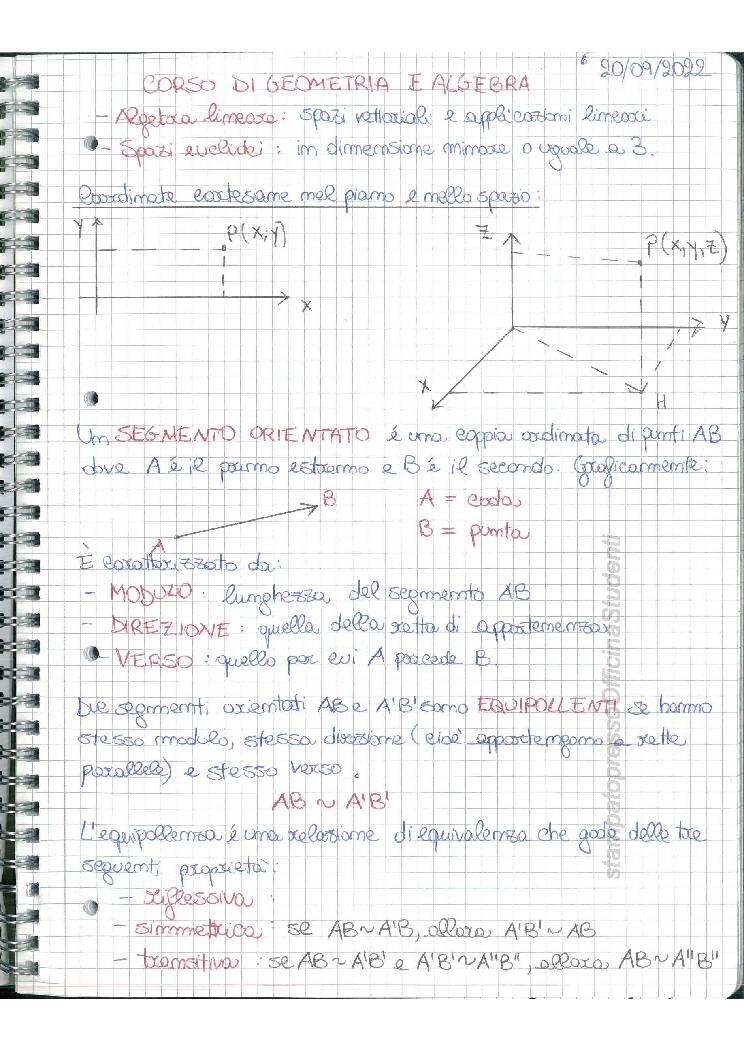 20/09/2022
CORSO DI GEOMETRIA E ALGEBRA
- Algebra lineare: spazi vettoriali e applicazioni lineari
- Spazi euclidei: in dimensione minore o uguale a 3.
Coordinate cartesiane nel piano e nello spazio:
Y P(x;y) X
Z P(x,y,z) Y X H
Un SEGMENTO ORIENTATO é una coppia ordinata di punti AB
dove A é il primo estremo e B é il secondo. Graficarmente:
B A = coda
A B = punta
È caratterizzato da:
- MODULO: lunghezza del segmento AB
- DIREZIONE: quella della retta di appartenenza
- VERSO: quello per cui A precede B.
Due segmenti orientati AB e A'B' sono EQUIPOLLENTI se hanno
stesso modulo, stessa direzione (cioé appartengono a rette
parallele) e stesso verso.
AB ~ A'B'
L'equipollenza é una relazione di equivalenza che gode delle tre
seguenti proprietà:
- riflessiva:
- simmetrica: se AB~A'B, allora A'B'~AB
- transitiva: se AB~A'B' e A'B'~A"B", allora AB~A"B"
stampatopressoOfficinaStudenti